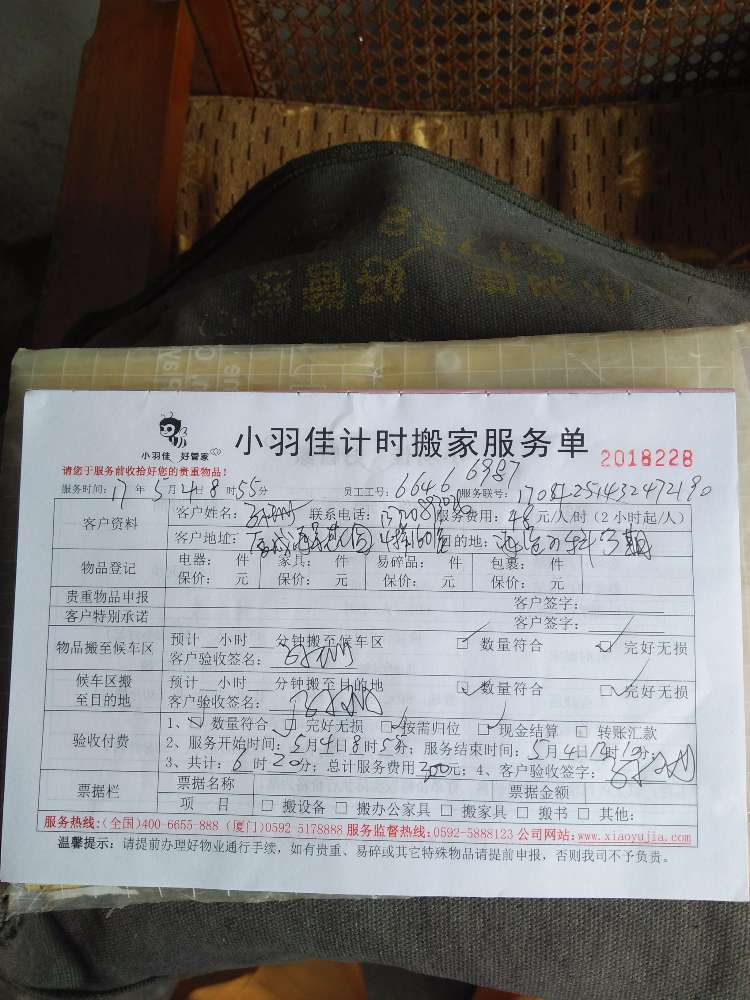 小羽佳 好管家
小羽佳计时搬家服务单
2018228
请您于服务前收拾好您的贵重物品！
服务时间：17年5月4日8时55分 员工工号：6646 6987 服务联号：
客户资料 客户姓名： 联系电话： 服务费用：48元/人/时（2小时起/人）
客户地址： 目的地：
物品登记 电器： 件 家具： 件 易碎品： 件 包裹： 件
保价： 元 保价： 元 保价： 元 保价： 元
贵重物品申报 客户签字：
客户特别承诺 客户签字：
物品搬至候车区 预计 小时 分钟搬至候车区 数量符合 完好无损
客户验收签名：
候车区搬至目的地 预计 小时 分钟搬至目的地 数量符合 完好无损
客户验收签名：
验收付费 1、 数量符合 完好无损 按需归位 现金结算 转账汇款
2、服务开始时间：5月4日8时55分；服务结束时间：5月4日 时10分；
3、共计：6时20分；总计服务费用300元；4、客户验收签字：
票据栏 票据名称 票据金额
项 目 □ 搬设备 □ 搬办公家具 □ 搬家具 □ 搬书 □ 其他：
服务热线：（全国）400-6655-888（厦门）0592 5178888 服务监督热线：0592-5888123 公司网站：www.xiaoyujia.com
温馨提示：请提前办理好物业通行手续，如有贵重、易碎或其它特殊物品请提前申报，否则我司不予负责。